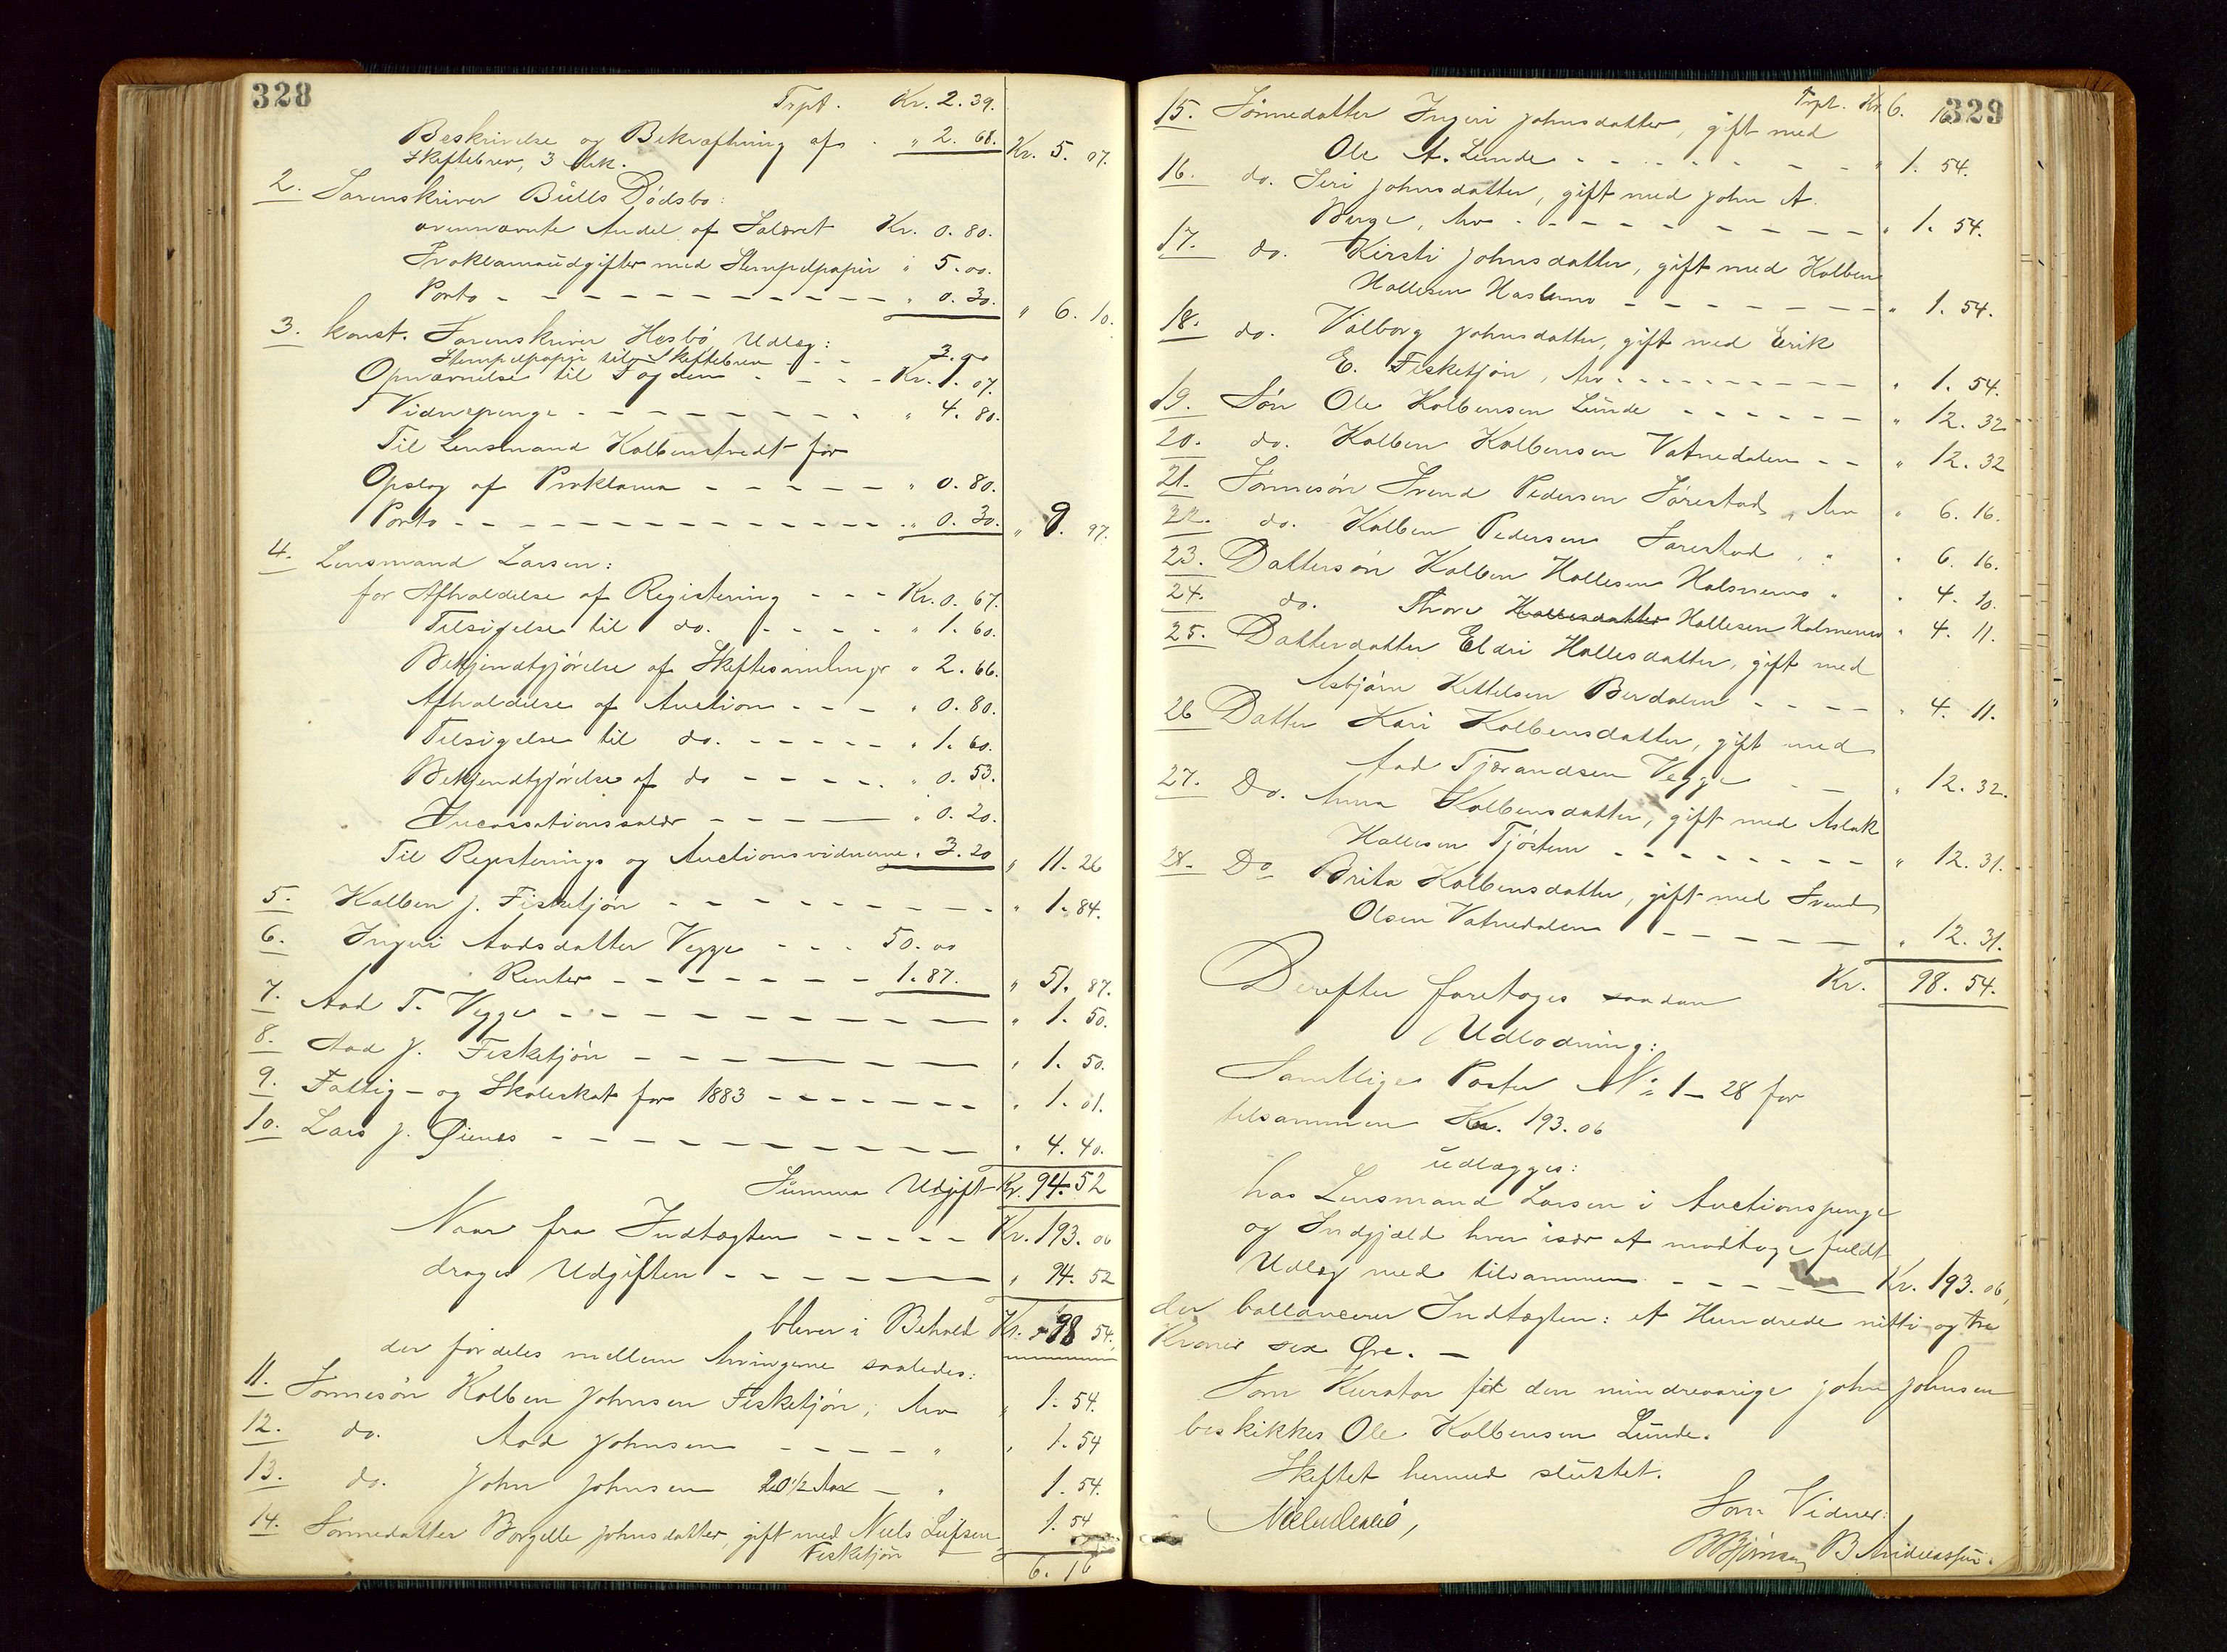 328
Trpt. Kr. 2.39.
Beskrivelse og Bekræftning af " 2. 68. Kr. 5. 07.
Skiftebrev, 3 Ark.
2. Sorenskriver Bülls Dödsbo:
ovennævnte Andel af Salæret Kr. 0. 80.
Proklamaudgifter med Stempelpapir " 5. 00.
Porto - - - " 0. 30. " 6. 10.
3. konst. Sorenskriver Hesbö Udlæg:
Stempelpapir til Skiftebrev - - 3. 00
Opnævnelse til Fogden - - - Kr. 1. 07.
Vidnepenge - - - " 4. 80.
Til Lensmand Kolbenstvedt for
Opslag af Proklama - - - " 0. 80.
Porto - - - " 0. 30. " 9. 97.
4. Lensmand Larsen:
for Afholdelse af Registering - - - Kr. 0. 67.
Tilsigelse til do. - - - " 1. 60.
Bekjendtgjörelse af Skiftesamlinger " 2. 66.
Afholdelse af Auction - - - " 0. 80.
Tilsigelse til do. - - - " 1. 60.
Bekjendtgjörelse af do - - - " 0. 53.
Incassationssalær - - - " 0. 20.
Til Registerings og Auctionsvidnerne " 3. 20 " 11. 26
5. Kolben J. Fisketjön - - - " 1. 84.
6. Ingeri Aadsdatter Vegge - - - 50. 00
Renter - - - 1. 87. " 51. 87.
7. Aad T. Vegge - - - " 1. 50.
8. Aad J. Fisketjön - - - " 1. 50.
9. Fattig- og Skoleskat for 1883 - - - " 1. 01.
10. Lars J. Öienes - - - " 4. 40.
Summa Udgift Kr. 94. 52
Naar fra Indtægten - - - Kr. 193. 06
drages Udgiften - - - " 94. 52
bliver i Behold Kr. 98 54.
der fordeles mellem Arvingerne saaledes:
11. Sönnesön Kolben Johnsen Fisketjön, Arv " 1. 54.
12. do. Aad Johnsen - - - " " 1. 54
13. do. John Johnsen 20 1/2 Aar - " 1. 54.
14. Sönnedatter Borgille Johnsdatter, gift med Niels Lufsen 1. 54
Fisketjön
6. 16
329
Trpt. Kr. 6. 16.
15. Sönnedatter Ingeri Johnsdatter, gift med
Ole A. Lunde - - - " 1. 54.
16. do. Siri Johnsdatter, gift med John A.
Berge, Arv - - - " 1. 54.
17. do. Kirsti Johnsdatter, gift med Kolben
Hallesen - - - " 1. 54.
18. do. Valborg Johnsdatter, gift med Erik
E. Fisketjön, Arv - - - " 1. 54.
19. Sön Ole Kolbensen Lunde - - - " 12. 32
20. do. Kolben Kolbensen Vatnedalen - - " 12. 32
21. Sönnesön Svend Pedersen Sörestad, Arv " 6. 16.
22. do. Kolben Pedersen Sörestad, " " 6. 16.
23. Dattersön Kolben Hallesen Holmenes " " 4. 10.
24. do. Thore Hallesdatter Hallesen Holmenes " 4. 11.
25. Datterdatter Eldri Hallesdatter, gift med
Asbjörn Kittelsen Berdalen - - - " 4. 11.
26 Datter Kari Kolbensdatter, gift med
Aad Tjörandsen Vegge - - " 12. 32.
27. Do. Anna Kolbensdatter, gift med Aslak
Hallesen Tjöstem - - - " 12. 31.
28. Do Brita Kolbensdatter, gift med Svend
Olsen Vatnedalen - - - " 12. 31.
Kr. 98. 54.
Derefter foretoges saadan
Udlodning:
Samtlige Poster No 1 - 28 for
tilsammen Kr. 193. 06
udlægges:
hos Lensmand Larsen i Auctionspenge
og Indgjæld hver især at modtage fuldt
Udlæg med tilsammen - - - Kr. 193. 06,
der ballancerer Indtægten: et Hundrede nitti og tre
Kroner sex Öre. -
Som Kurator for den mindreaarige John Johnsen
beskikkes Ole Kolbensen Lunde.
Skiftet hermed sluttet.
Som Vidner:
B Andreassen.